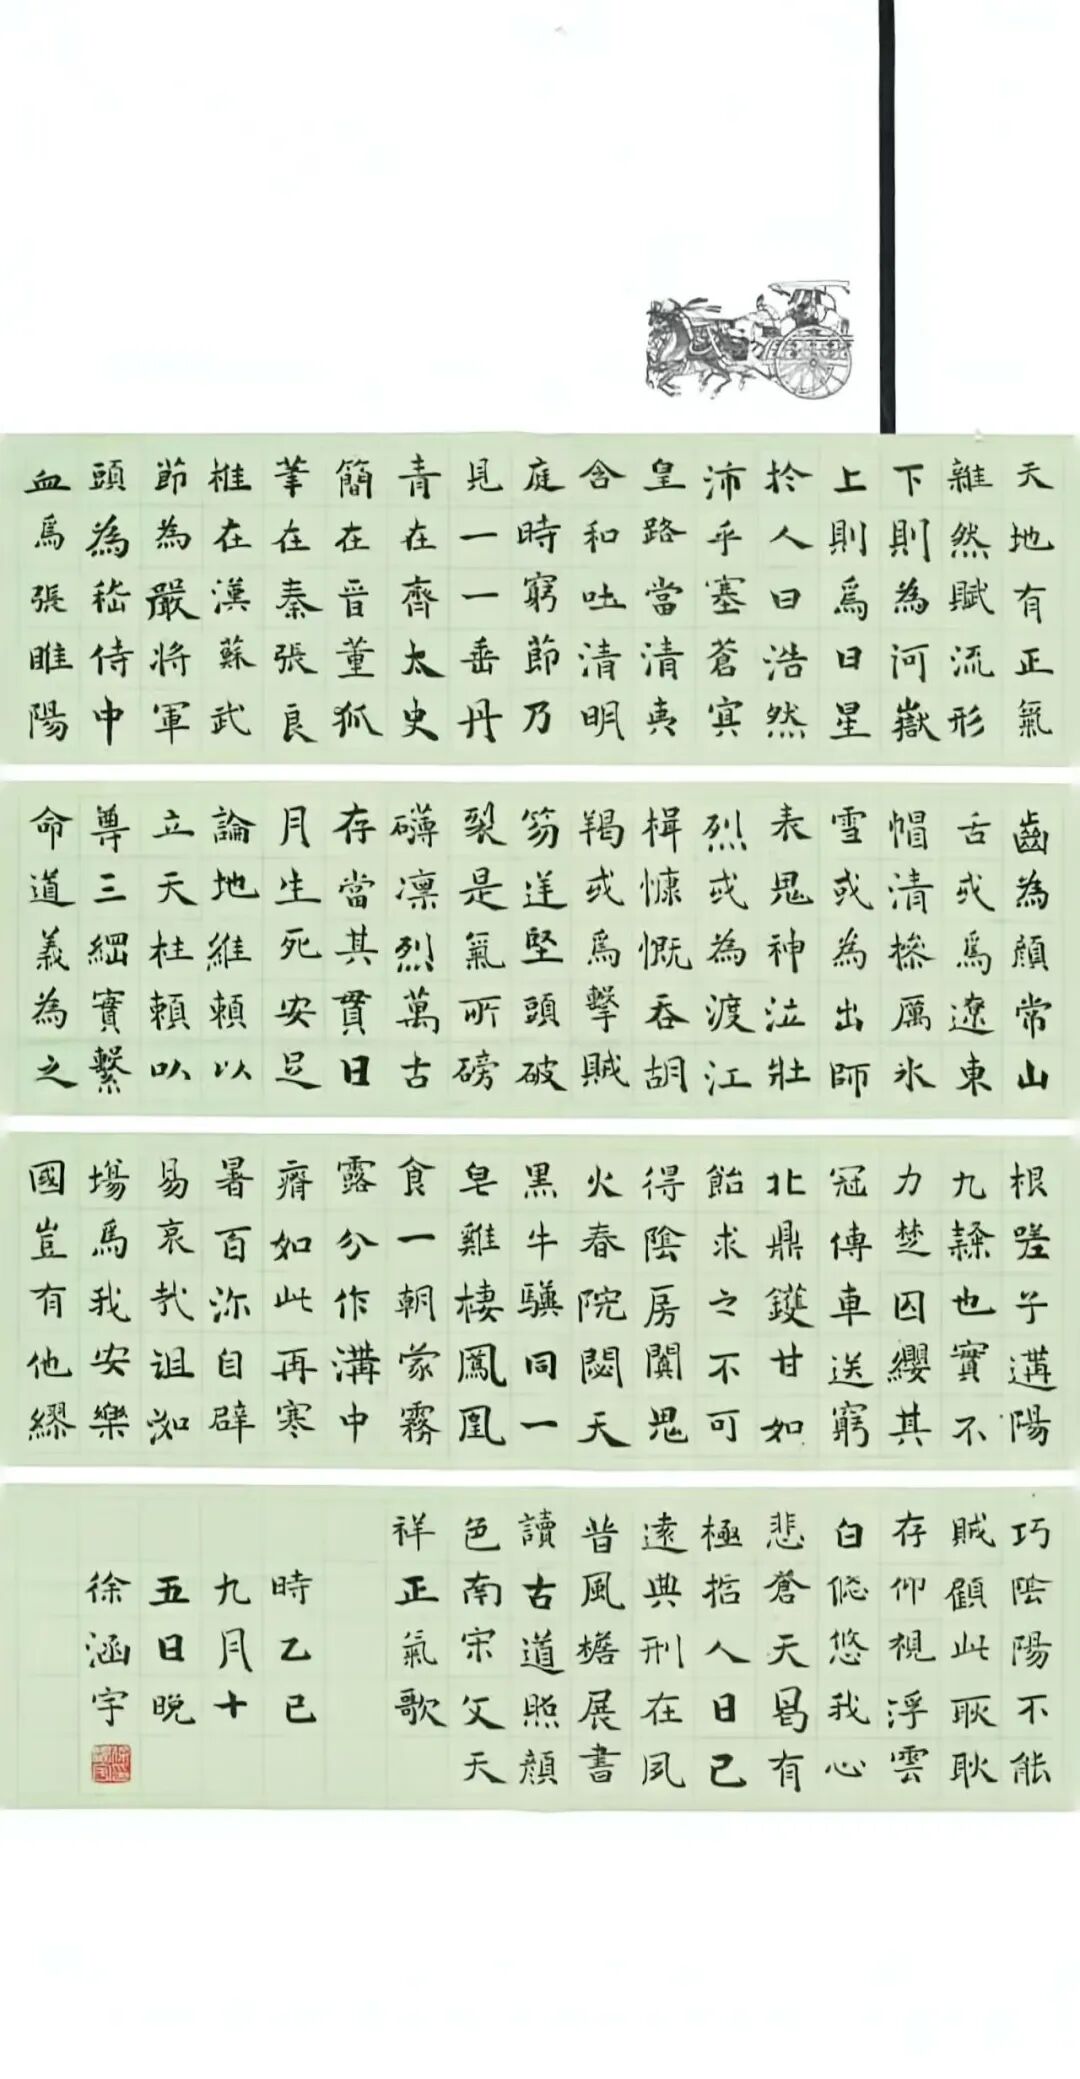 天地有正氣
雜然賦流形
下則為河嶽
上則爲日星
於人曰浩然
沛乎塞蒼冥
皇路當清夷
含和吐清明
庭時窮節乃
見一一垂丹
青在齊太史
簡在晉董狐
筆在秦張良
椎在漢蘇武
節為嚴將軍
頭為嵇侍中
血爲張睢陽
齒為顏常山
舌或爲遼東
帽清摻厲氷
雪或為出師
表鬼神泣壯
烈或為渡江
楫慷慨吞胡
羯或爲擊賊
笏逆堅頭破
裂是氣所磅
礴凛烈萬古
存當其貫日
月生死安足
論地維賴以
立天柱賴以
尊三綱實繫
命道義為之
根嗟予遘陽
九隸也實不
力楚囚纓其
冠傳車送窮
北鼎鑊甘如
飴求之不可
得陰房闃鬼
火春院閟天
黑牛驥同一
皂雞棲鳳凰
食一朝蒙霧
露分作溝中
瘠如此再寒
暑百沴自辟
易哀哉沮洳
場爲我安樂
國豈有他繆
巧陰陽不能
賊顧此耿耿
存仰視浮雲
白悠悠我心
悲蒼天曷有
極哲人日已
遠典刑在夙
昔風檐展書
讀古道照顏
色南宋文天
祥正氣歌
時乙巳
九月十
五日晚
徐涵宇